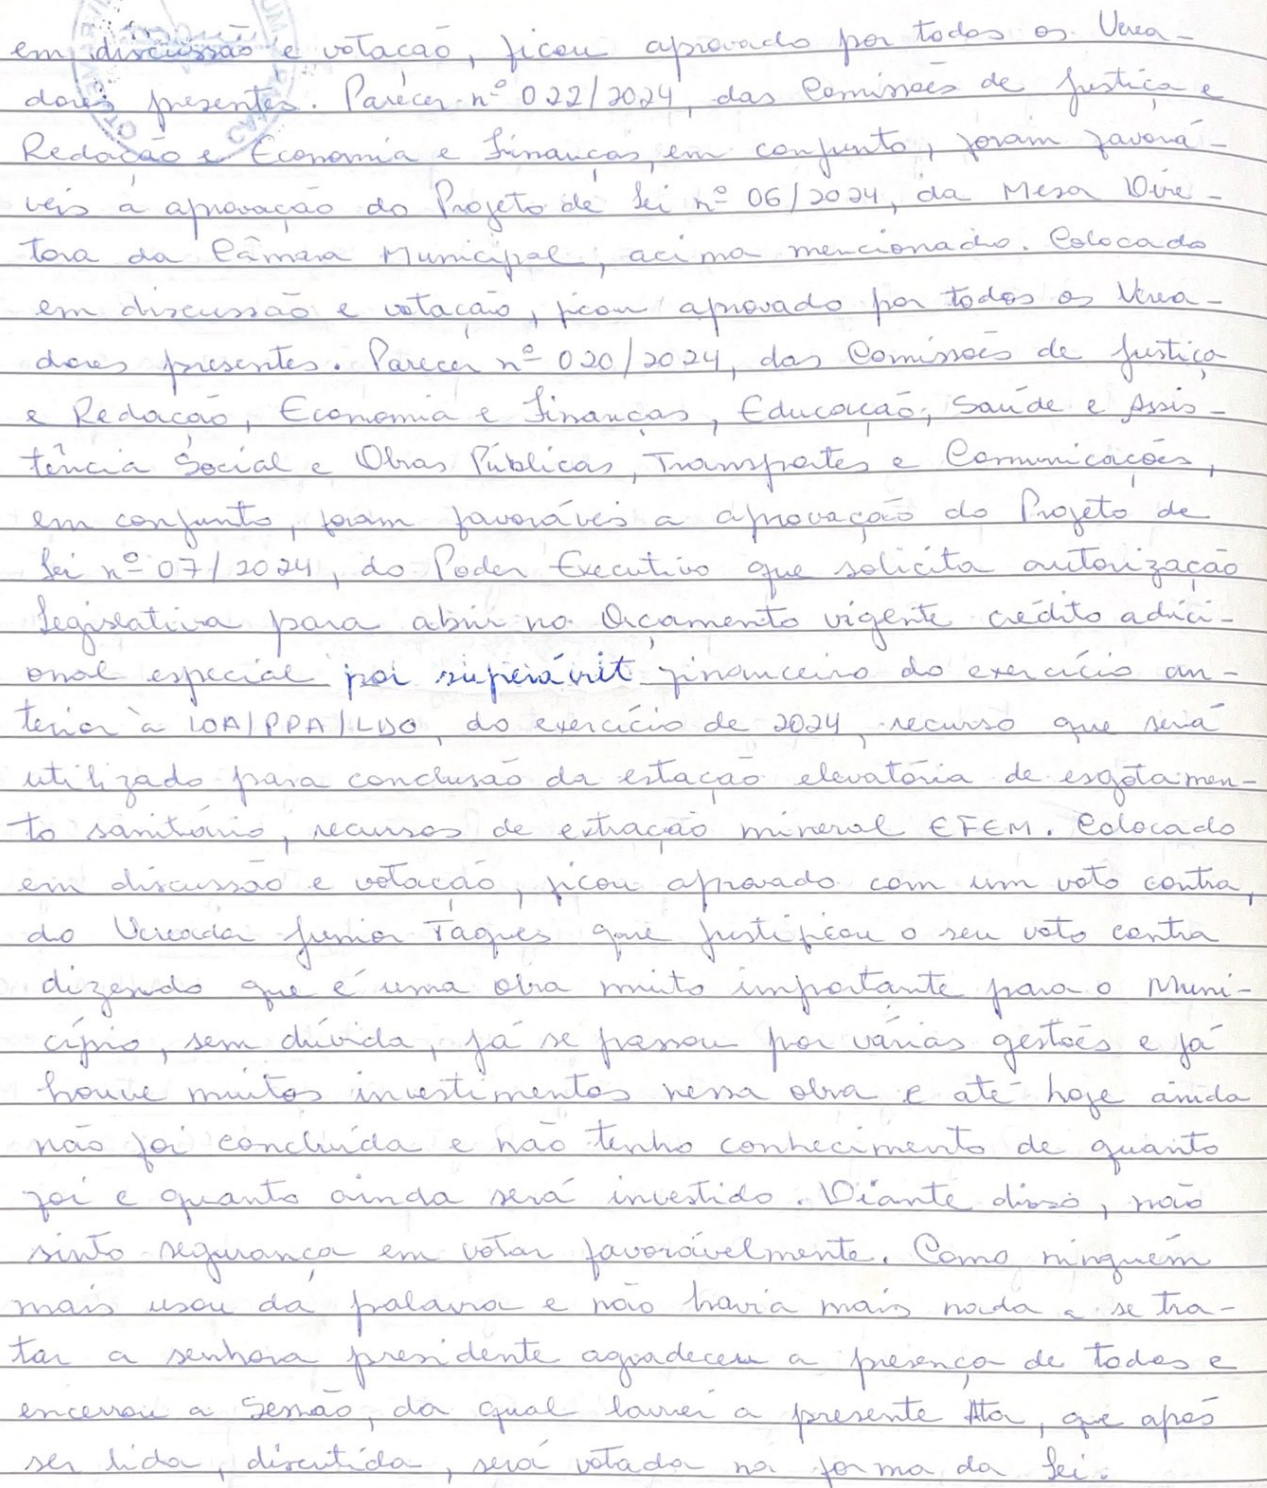 em discussão e votação, ficou aprovado por todos os Verea-
dores presentes. Parecer nº 022/2024, das Comissões de Justiça e
Redação e Economia e Finanças, em conjunto, foram favorá-
veis a aprovação do Projeto de Lei nº 06/2024, da Mesa Dire-
tora da Câmara Municipal, acima mencionado. Colocado
em discussão e votação, ficou aprovado por todos os Verea-
dores presentes. Parecer nº 020/2024, das Comissões de Justiça
e Redação, Economia e Finanças, Educação, Saúde e Assis-
tência Social e Obras Públicas, Transportes e Comunicações,
em conjunto, foram favoráveis a aprovação do Projeto de
Lei nº 07/2024, do Poder Executivo que solicita autorização
Legislativa para abrir no Orçamento vigente crédito adici-
onal especial por superávit financeiro do exercício an-
terior à LOA/PPA/LDO, do exercício de 2024, recurso que será
utilizado para conclusão da estação elevatória de esgotamen-
to sanitário, recursos de extração mineral EFEM. Colocado
em discussão e votação, ficou aprovado com um voto contra,
do Vereador Junior Taques que justificou o seu voto contra
dizendo que é uma obra muito importante para o Muni-
cípio, sem dúvida, já se passou por várias gestões e já
houve muitos investimentos nessa obra e até hoje ainda
não foi concluída e não tenho conhecimento de quanto
foi e quanto ainda será investido. Diante disso, não
sinto segurança em votar favorávelmente. Como ninguém
mais usou da palavra e não havia mais nada a se tra-
tar a senhora presidente agradeceu a presença de todos e
encerrou a Sessão, da qual lavrei a presente Ata, que após
ser lida, discutida, será votada na forma da Lei.